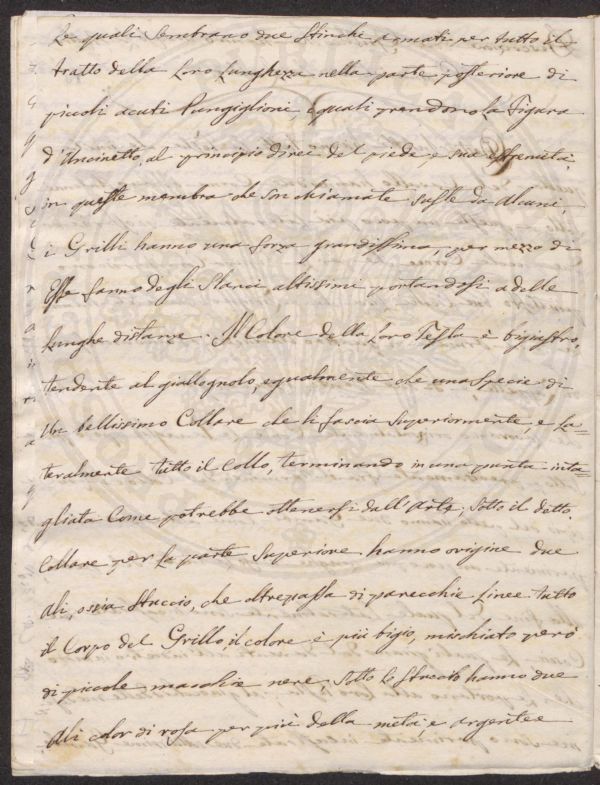 Le quali Sembrano due Stinche armati per tutto il
tratto della Loro Lunghezza nella parte posteriore di
piccoli acuti Pungiglioni, i quali prendono la Figura
d'Uncinetto, al principio direi del piede, e sua estremità,
in queste membra che son chiamate suste da Alcuni,
i Grilli hanno una forza grandissima, per mezzo di
Esse fanno degli Slanci altissimi portandosi a delle
Lunghe distanze. Il Colore della Loro Testa è bigiastro,
tendente al giallognolo, egualmente che una Specie di
Un bellissimo Collare che li fascia Superiormente, e La=
teralmente tutto il Collo, terminando in una punta inta=
gliata Come potrebbe ottenersi dall'Arte; Sotto il detto
Collare per La parte Superiore hanno origine due
Ali, o sia Stuccio, che oltrepassa di parecchie Linee tutto
il Corpo del Grillo, il colore è più bigio, mischiato però
di piccole macchie nere; Sotto Lo Stuccio hanno due
Ali color di rosa per più della metà, e argentee